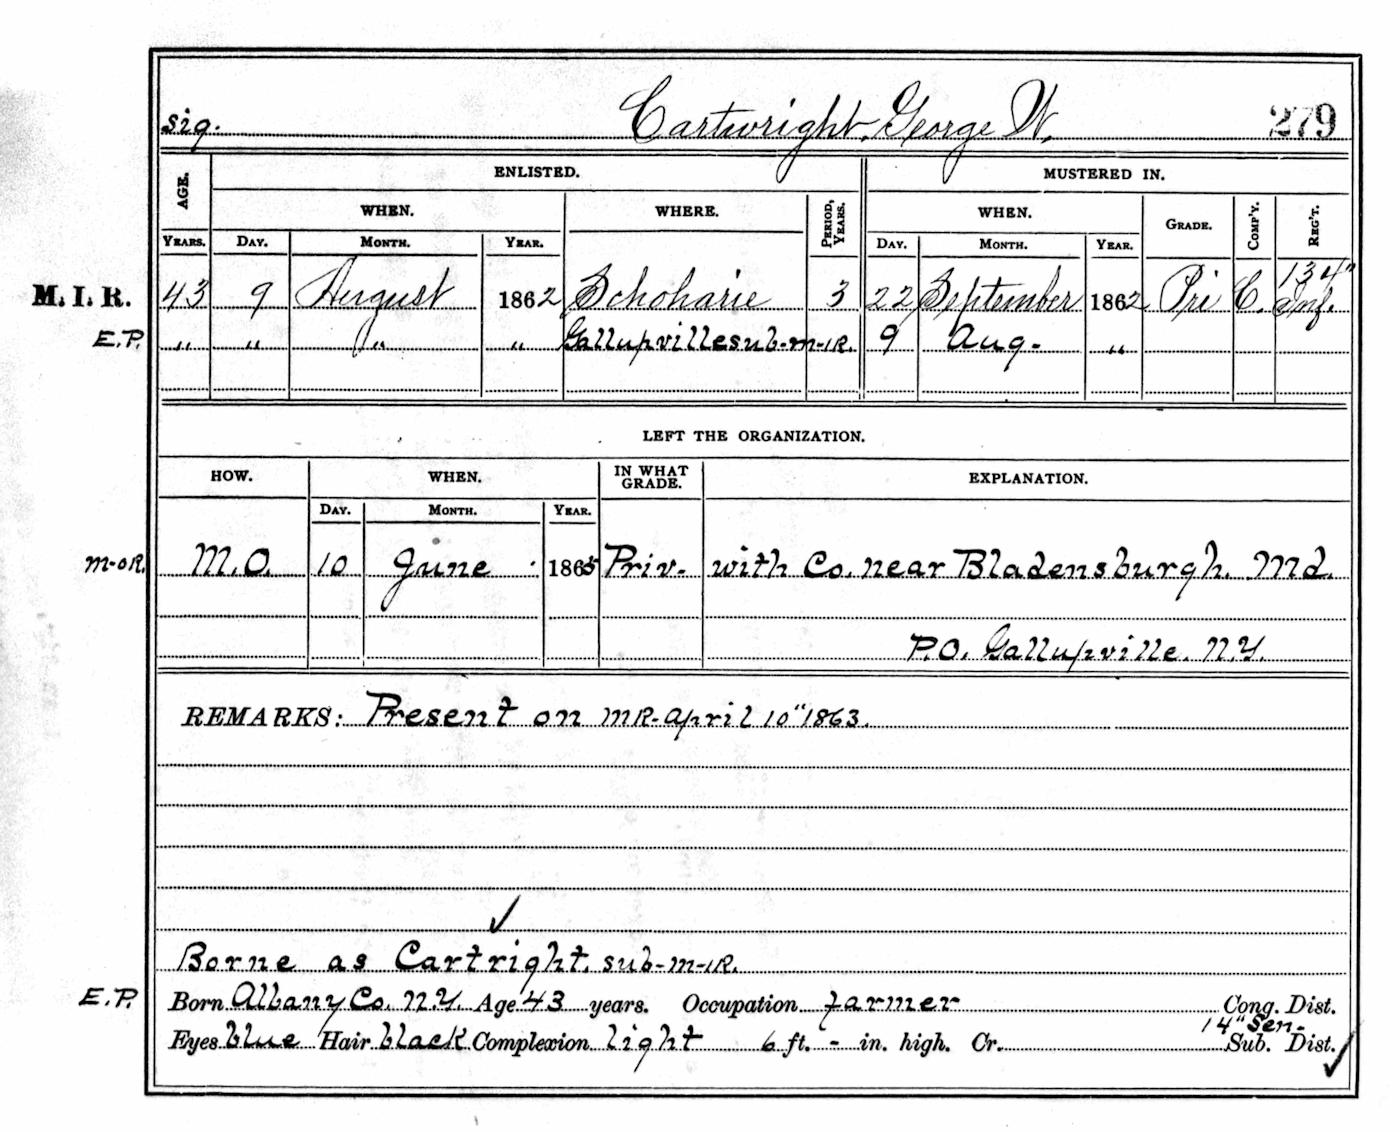 sig. Cartwright, George W. 279
AGE. ENLISTED. MUSTERED IN.
WHEN. WHERE. PERIOD, YEARS. WHEN. GRADE. COMP'Y. REG'T.
YEARS. DAY. MONTH. YEAR. DAY. MONTH. YEAR.
M. I. R. 43 9 August 1862 Schoharie 3 22 September 1862 Pri C. 134" Inf.
E.P. " " " " Gallupville sub-m-IR. 9 Aug. "
LEFT THE ORGANIZATION.
HOW. WHEN. IN WHAT GRADE. EXPLANATION.
DAY. MONTH. YEAR.
m-OR. M.O. 10 June 1865 Priv- with Co. near Bladensburgh. Md.
P.O. Gallupville. N.Y.
REMARKS: Present on MR-April 10" 1863.
Borne as Cartright. sub-m-IR.
E.P. Born Albany Co. N.Y. Age 43 years. Occupation farmer Cong. Dist.
14" Sen-
Eyes blue Hair black Complexion light 6 ft. - in. high. Cr. Sub. Dist.